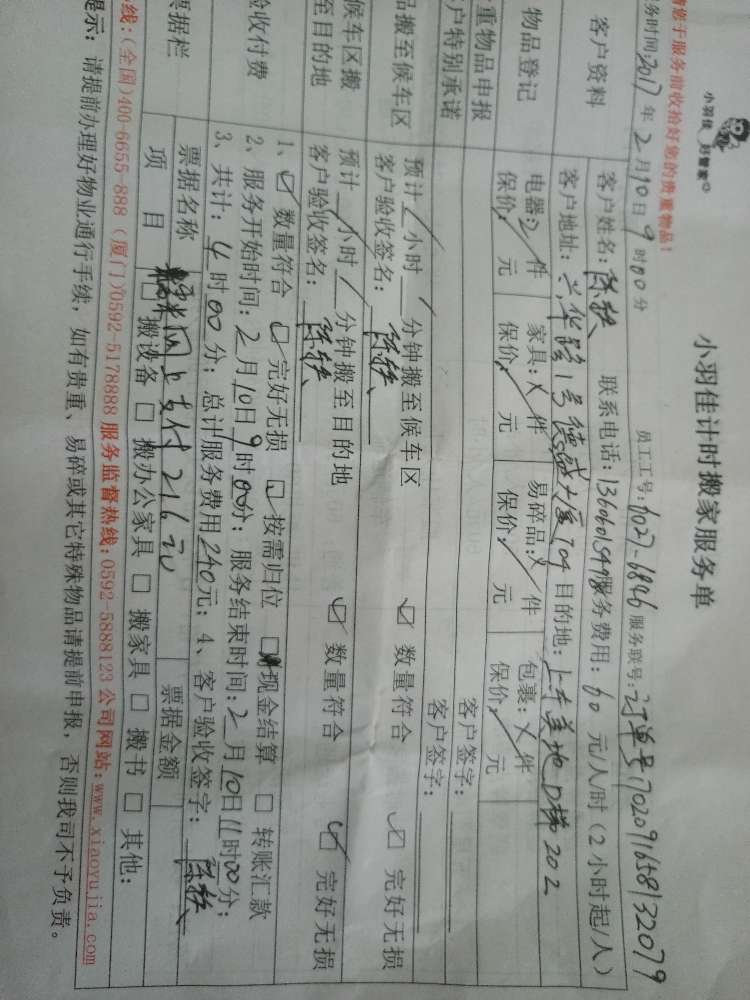 小羽佳 好管家
小羽佳计时搬家服务单
前收拾好您的贵重物品!
员工工号: 1027-6846 服务联号: 订单号1702091658132079
务时间: 2017年2月10日9时00分
客户资料
客户姓名: 联系电话: 服务费用: 60元/人/时 (2小时起/人)
客户地址: 兴华路1号德盛大厦709 目的地: 美地D梯202
物品登记
电器: 2件 家具: 件 易碎品: 件 包裹: 件
保价: 元 保价: 元 保价: 元 保价: 元
重物品申报
客户签字:
户特别承诺
客户签字:
品搬至候车区
预计 小时 分钟搬至候车区 ☑ 数量符合 ☑ 完好无损
客户验收签名:
候车区搬
至目的地
预计 小时 分钟搬至目的地 ☑ 数量符合 ☑ 完好无损
客户验收签名:
验收付费
1、☑ 数量符合 ☑ 完好无损 ☑ 按需归位 现金结算 □ 转账汇款
2、服务开始时间: 2月10日9时00分; 服务结束时间: 2月10日11时00分;
3、共计: 4时00分; 总计服务费用240元; 4、客户验收签字:
票据栏
票据名称 网上支付216元 票据金额
项 目 □ 搬设备 □ 搬办公家具 □ 搬家具 □ 搬书 □ 其他:
线: (全国)400-6655-888 (厦门)0592-5178888 服务监督热线: 0592-5888123 公司网站: www.xiaoyujia.com
提示: 请提前办理好物业通行手续, 如有贵重、易碎或其它特殊物品请提前申报, 否则我司不予负责。